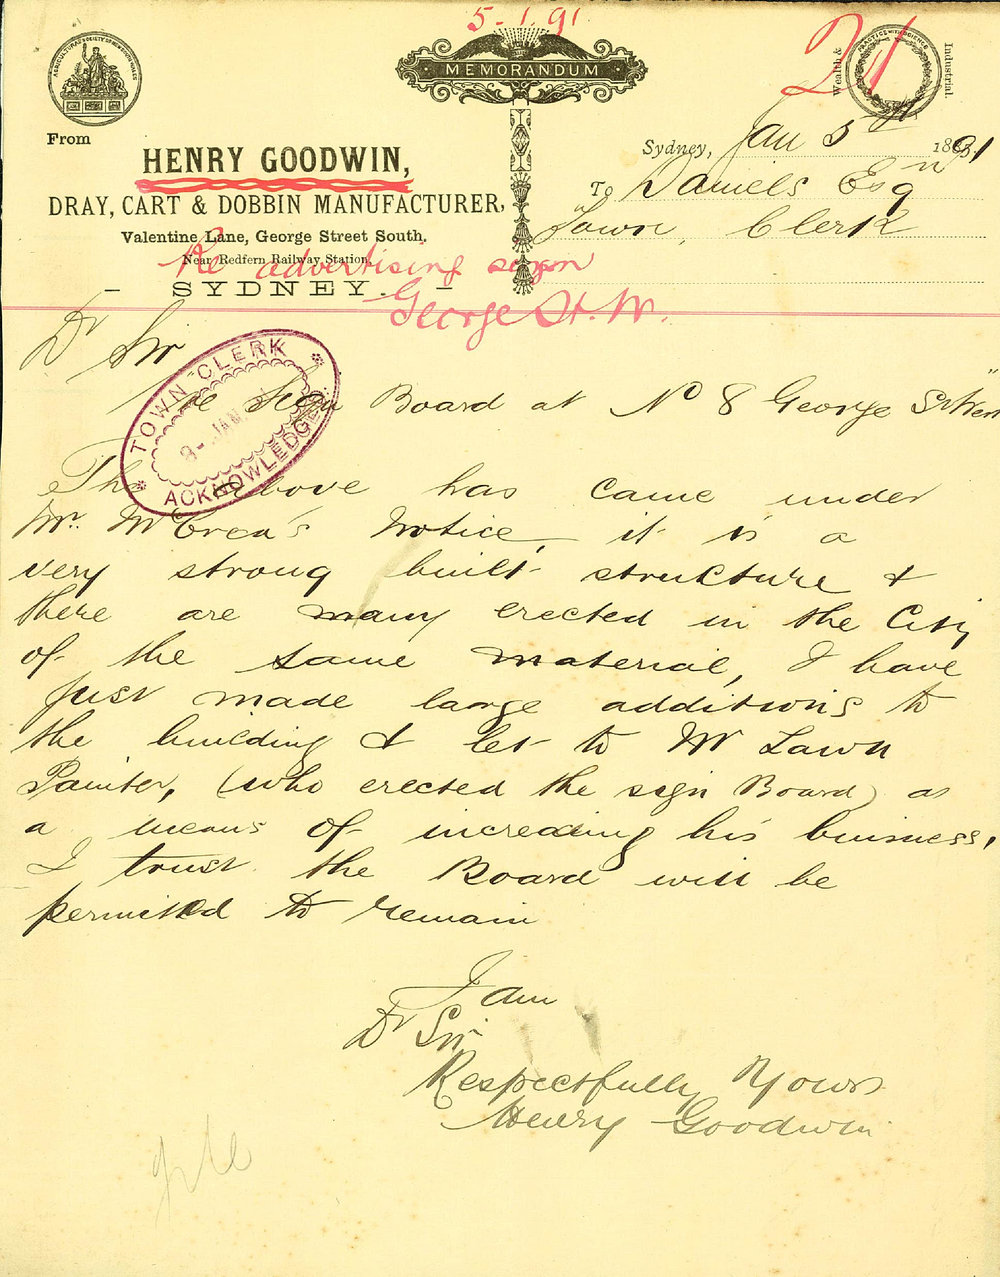 5.1.91
21
AGRICULTURAL SOCIETY OF NEW SOUTH WALES
MEMORANDUM
PRACTICE WITH SCIENCE
Wealth &
Industrial.
From
HENRY GOODWIN,
DRAY, CART & DOBBIN MANUFACTURER,
Valentine Lane, George Street South,
Near Redfern Railway Station,
SYDNEY.
Sydney, Jan 5th 1891
To Daniels Esq
Town Clerk
Re advertising sign
George St. W.
Dr Sir
TOWN CLERK
JAN
ACKNOWLEDGED
Re Sign Board at No 8 George St West
The above has came under
Mr. McCrea's Notice, it is a
very strong built structure &
there are many erected in the City
of the same material, I have
just made large additions to
the building & let to Mr Lawn
Painter, (who erected the sign Board) as
a means of increasing his buisness,
I trust the Board will be
permitted to remain
I am
Dr Sir
Respectfully Yours
Henry Goodwin